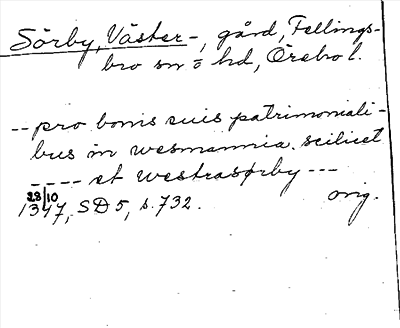 Sörby, Väster-, gård, Fellings-
bro sn o hd, Örebro l.
-- pro bonis suis patrimoniali-
bus in wesmannia scilicet
---- et westrasørby ---
28/10 orig.
1347, SD 5, s. 732.